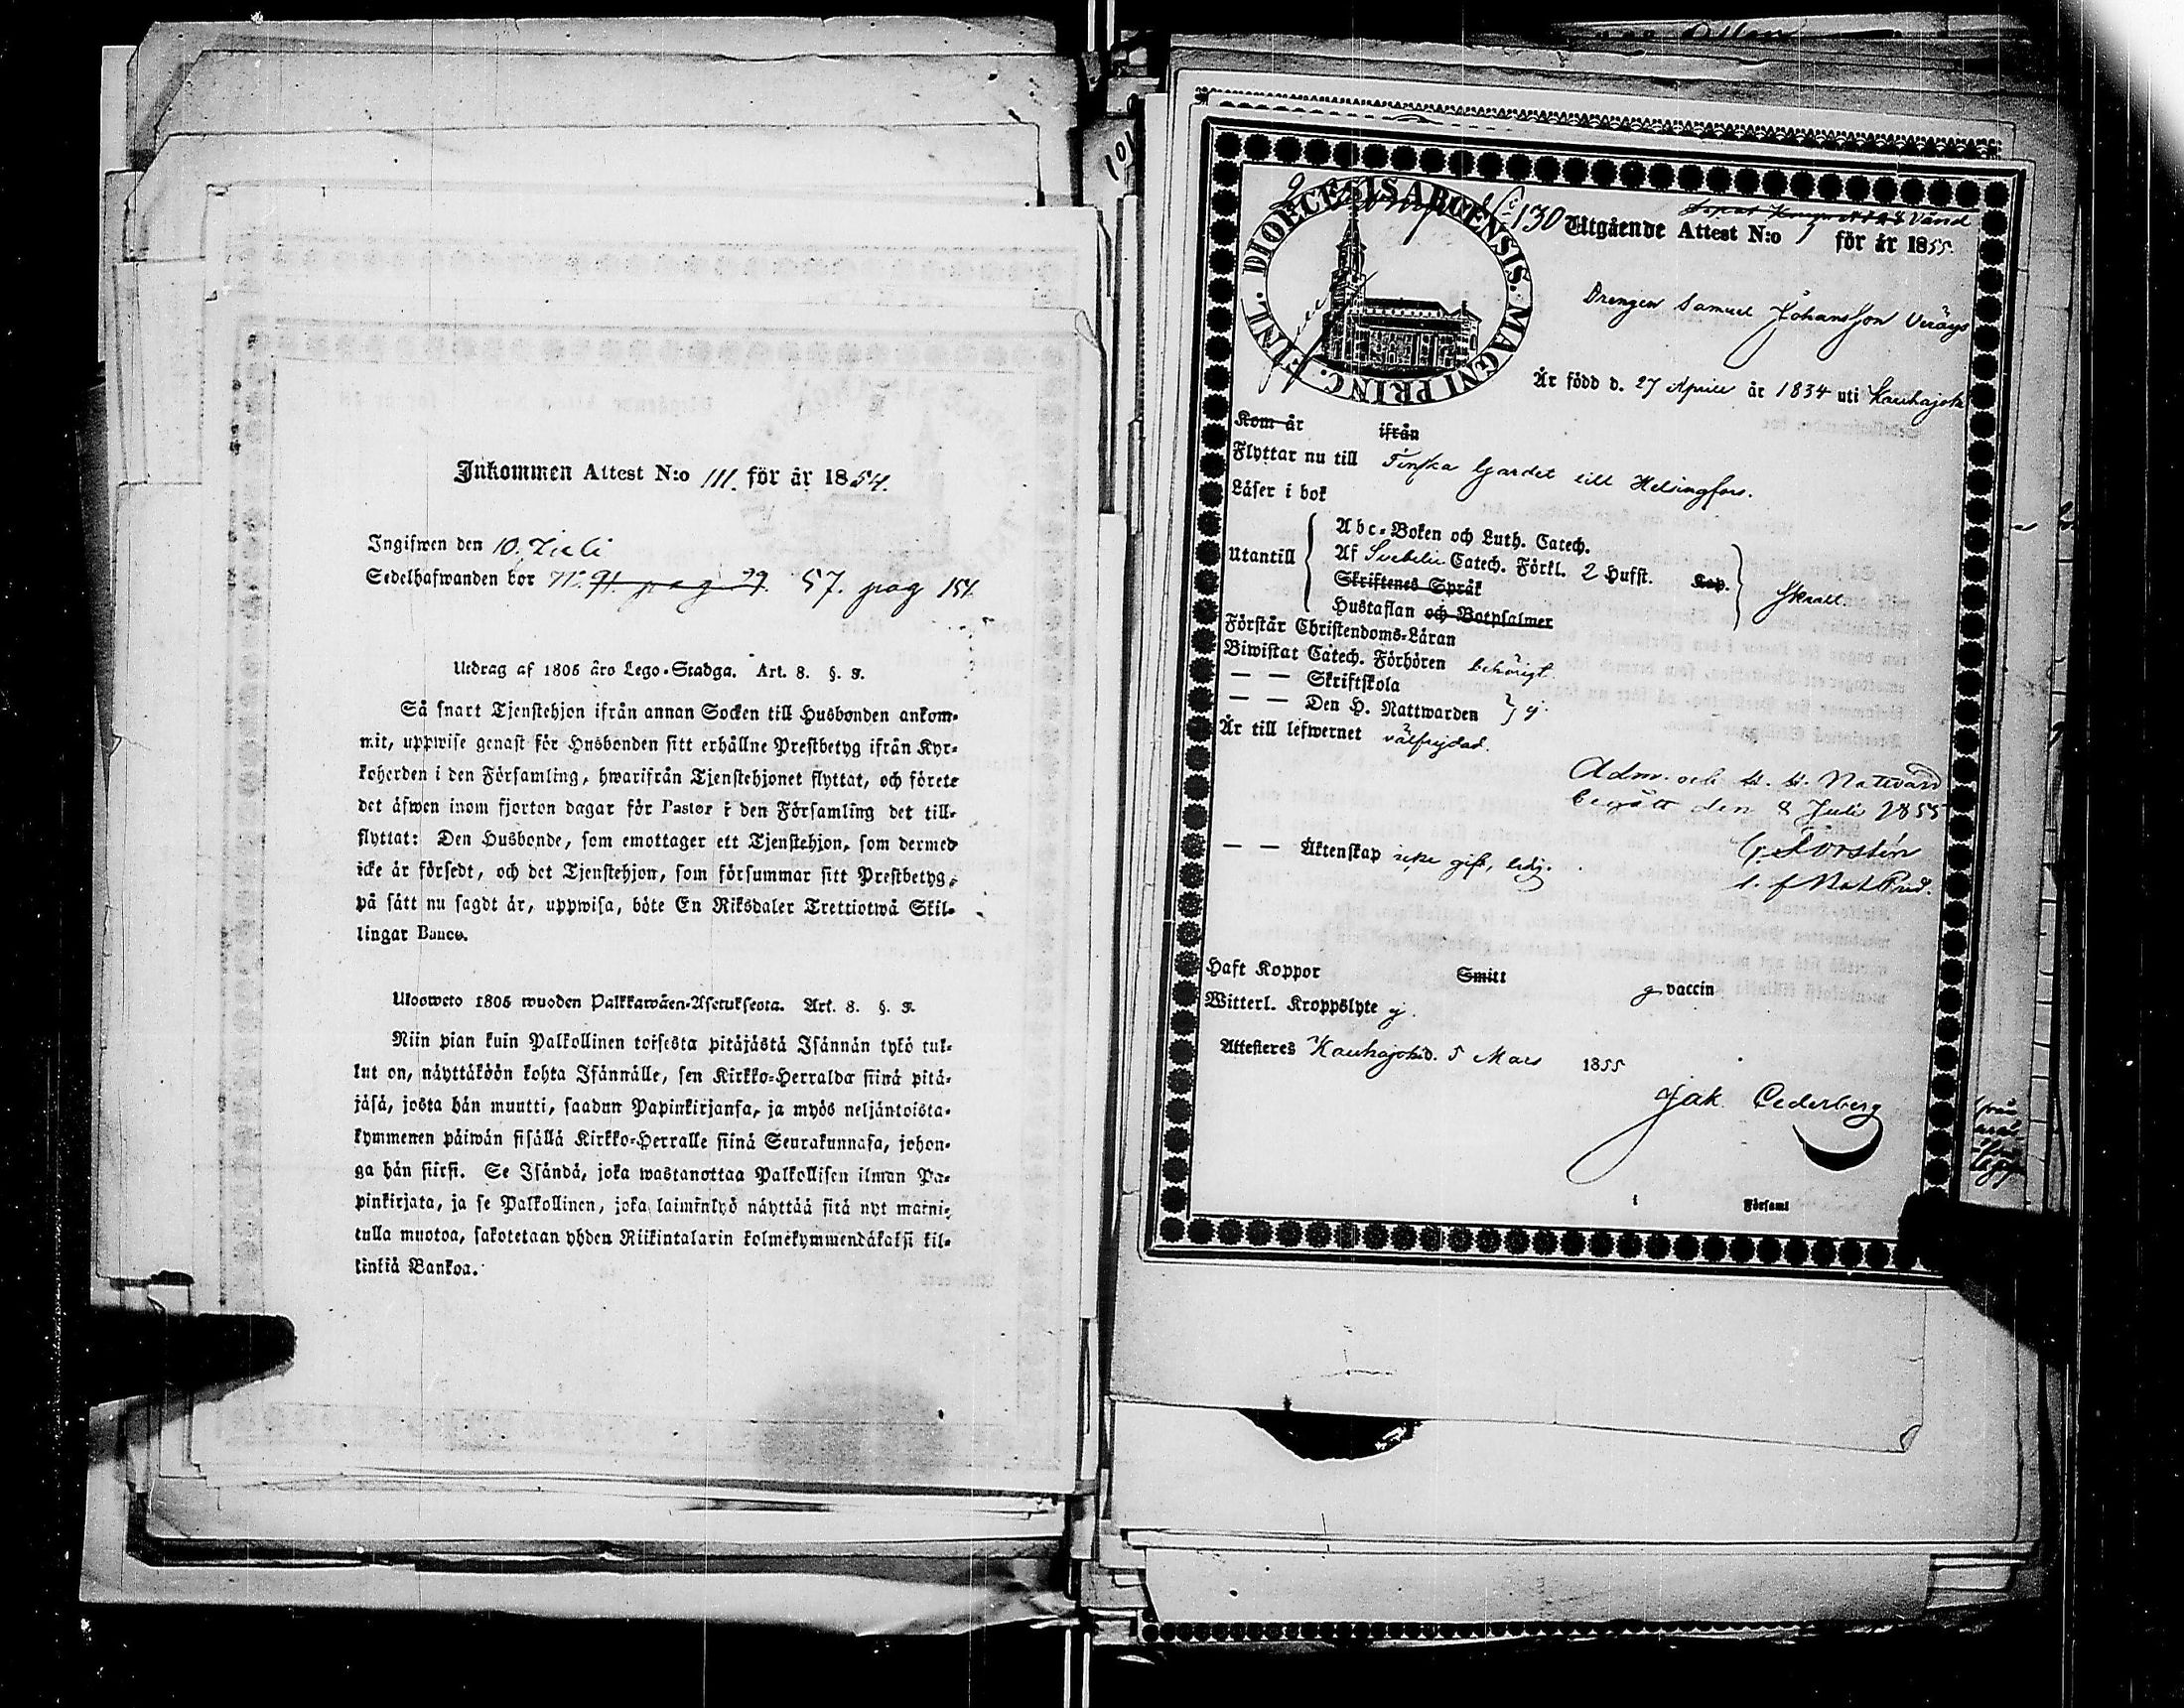 Inkommen Attest N:o 111. för år 1854.
Ingifwen den 10. Juli
Sedelhafwanden bor N:o 91. pag 79. 57. pag 151
Utdrag af 1805 års Lego-Stadga. Art. 8. §. 3.
Så snart Tjenstehjon ifrån annan Socken till Husbonden ankom-
mit, uppwise genast för Husbonden sitt erhållne Prestbetyg ifrån Kyr-
koherden i den Församling, hwarifrån Tjenstehjonet flyttat, och förete
det äfwen inom fjorton dagar för Pastor i den Församling det till-
flyttat: Den Husbonde, som emottager ett Tjenstehjon, som dermed
icke är försedt, och det Tjenstehjon, som försummar sitt Prestbetyg,
på sätt nu sagdt är, uppwisa, böte En Riksdaler Trettiotwå Skil-
lingar Banco.
Ulosweto 1805 wuoden Palkkawäen-Asetuksesta. Art. 8. §. 3.
Niin pian kuin Palkollinen toisesta pitäjästä Isännän tykö tul-
lut on, näyttäköön kohta Isännälle, sen Kirkko-Herralda siinä pitä-
jäsä, josta hän muutti, saadun Papinkirjansa, ja myös neljäntoista-
kymmenen päiwän sisällä Kirkko-Herralle siinä Seurakunnasa, johon-
ga hän siirsi. Se Isändä, joka wastanottaa Palkollisen ilman Pa-
pinkirjata, ja se Palkollinen, joka laiminlyö näyttää sitä nyt maini-
tulla muotoa, sakotetaan yhden Riikintalarin kolmekymmendäkaksi kil-
linkiä Bankoa.
101
DIOECESIS ABOENSIS. MAGNI PRINC. FINL.
130 Utgående Attest N:o 7 för år 1855.
Drengen Samuel Johansson Veräys
Är född d. 27 Aprill år 1834 uti Kauhajoki
Kom år ifrån
Flyttar nu till Finska Gardet till Helsingfors.
Läser i bok
Utantill
Abc-Boken och Luth. Catech.
Af Svebelii Catech. Förkl. 2 Hufst. Kap.
Skriftenes Språk
Hustaflan och Botpsalmer
Skrall.
Förstår Christendoms-Läran
Biwistat Catech. Förhören behörigt.
— — Skriftskola
— — Den H. Nattwarden ej.
Är till lefwernet välfrejdad.
Adm. och H. H. Nattvard
begått den 8 Juli 1855
G. Forstén
— — Äktenskap icke gift, ledig.
Haft Koppor Smitt ej vaccin
Witterl. Kroppslyte ej.
Attesteres Kauhajoki d. 5 Mars 1855
Jak. Cederberg
i Församl